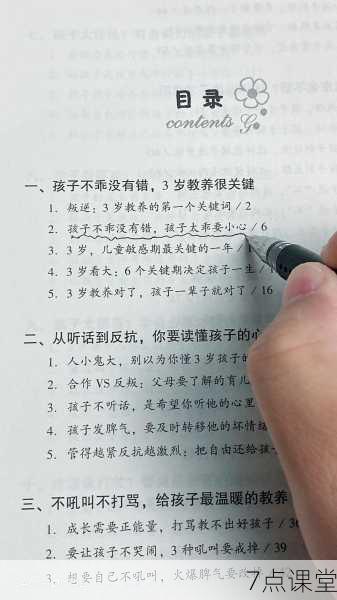 目录
contents
一、孩子不乖没有错，3岁教养很关键
1. 叛逆：3岁教养的第一个关键词 / 2
2. 孩子不乖没有错，孩子太乖要小心 / 6
3. 3岁，儿童敏感期最关键的一年 /
4. 3岁看大：6个关键期决定孩子一生 / 1
5. 3岁教养对了，孩子一辈子就对了 / 16
二、从听话到反抗，你要读懂孩子的心
1. 人小鬼大，别以为你懂3岁孩子的
2. 合作VS反叛：父母要了解的育儿
3. 孩子不听话，是希望你听他的心里
4. 孩子发脾气，要及时转移他的坏情绪
5. 管得越紧反抗越激烈：把自由还给孩子
三、不吼叫不打骂，给孩子最温暖的教养
1. 成长需要正能量，打骂教不出好孩子 / 36
2. 要让孩子不哭闹，3种吼叫要戒掉 / 39
3. 想要自己不吼叫，火爆脾气要改掉
7点课堂